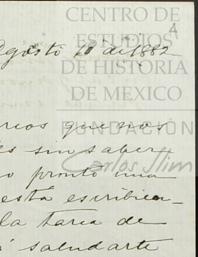 CENTRO DE
ESTUDIOS
DE HISTORIA
DE MEXICO
FUNDACIÓN
Carlos Slim
4
Agosto 20 de 1882
que nos
sin saber
pronto una
esta escribien-
la tarea de
saludarte